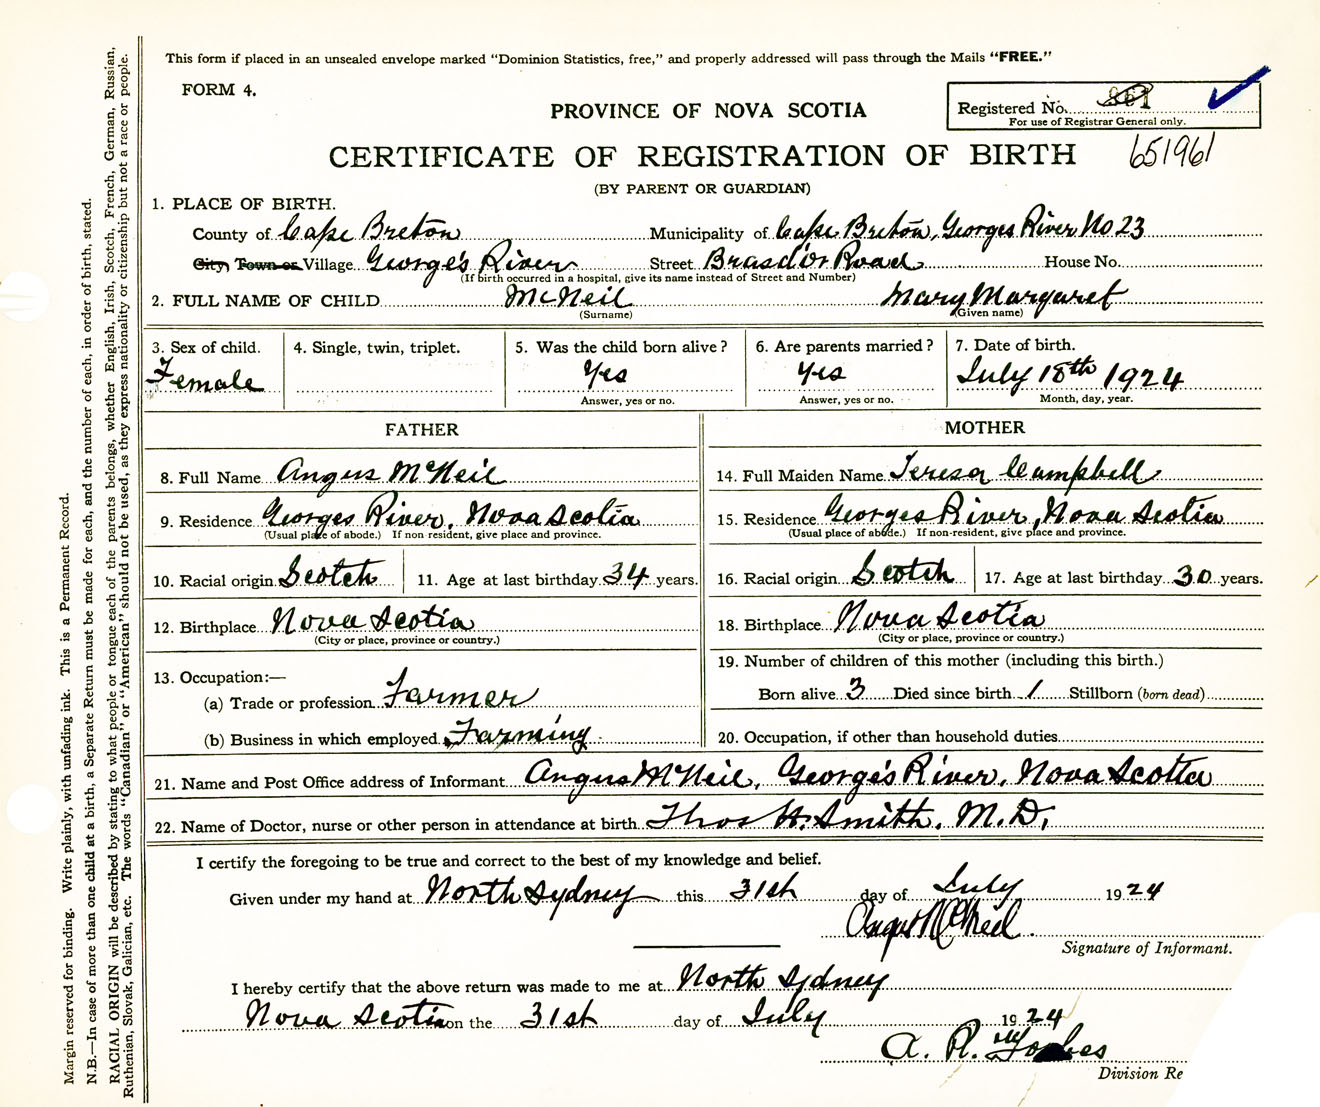 This form if placed in an unsealed envelope marked “Dominion Statistics, free,” and properly addressed will pass through the Mails “FREE.”
FORM 4.
PROVINCE OF NOVA SCOTIA
Registered No. 861
For use of Registrar General only.
CERTIFICATE OF REGISTRATION OF BIRTH 651961
(BY PARENT OR GUARDIAN)
1. PLACE OF BIRTH.
County of Cape Breton Municipality of Cape Breton, Georges River No 23
City, Town or Village George's River Street Brasd'or Road House No.
(If birth occurred in a hospital, give its name instead of Street and Number)
2. FULL NAME OF CHILD McNeil Mary Margaret
(Surname) (Given name)
3. Sex of child. 4. Single, twin, triplet. 5. Was the child born alive? 6. Are parents married? 7. Date of birth.
Female Yes Yes July 18th 1924
Answer, yes or no. Answer, yes or no. Month, day, year.
FATHER MOTHER
8. Full Name Angus McNeil 14. Full Maiden Name Teresa Campbell
9. Residence Georges River, Nova Scotia 15. Residence Georges River, Nova Scotia
(Usual place of abode.) If non resident, give place and province. (Usual place of abode.) If non-resident, give place and province.
10. Racial origin Scotch 11. Age at last birthday 34 years. 16. Racial origin Scotch 17. Age at last birthday 30 years.
12. Birthplace Nova Scotia 18. Birthplace Nova Scotia
(City or place, province or country.) (City or place, province or country.)
13. Occupation:— 19. Number of children of this mother (including this birth.)
(a) Trade or profession Farmer Born alive 3 Died since birth 1 Stillborn (born dead)
(b) Business in which employed Farming 20. Occupation, if other than household duties
21. Name and Post Office address of Informant Angus McNeil, George's River, Nova Scotia
22. Name of Doctor, nurse or other person in attendance at birth Thos H. Smith, M.D.
I certify the foregoing to be true and correct to the best of my knowledge and belief.
Given under my hand at North Sydney this 31st day of July 1924
Angus McNeil
Signature of Informant.
I hereby certify that the above return was made to me at North Sydney
Nova Scotia on the 31st day of July 1924
A. R. Forbes
Division Re
Margin reserved for binding. Write plainly, with unfading ink. This is a Permanent Record.
N.B.—In case of more than one child at a birth, a Separate Return must be made for each, and the number of each, in order of birth, stated.
RACIAL ORIGIN will be described by stating to what people or tongue each of the parents belongs, whether English, Irish, Scotch, French, German, Russian,
Ruthenian, Slovak, Galician, etc. The words “Canadian” or “American” should not be used, as they express nationality or citizenship but not a race or people.